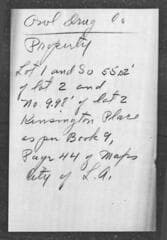 Owl Drug Co
Property
Lot 1 and So 55.02'
of lot 2 and
No. 9.98' of lot 2
Kensington Place
as per Book 9,
Page 44 of Maps
City of L.A.